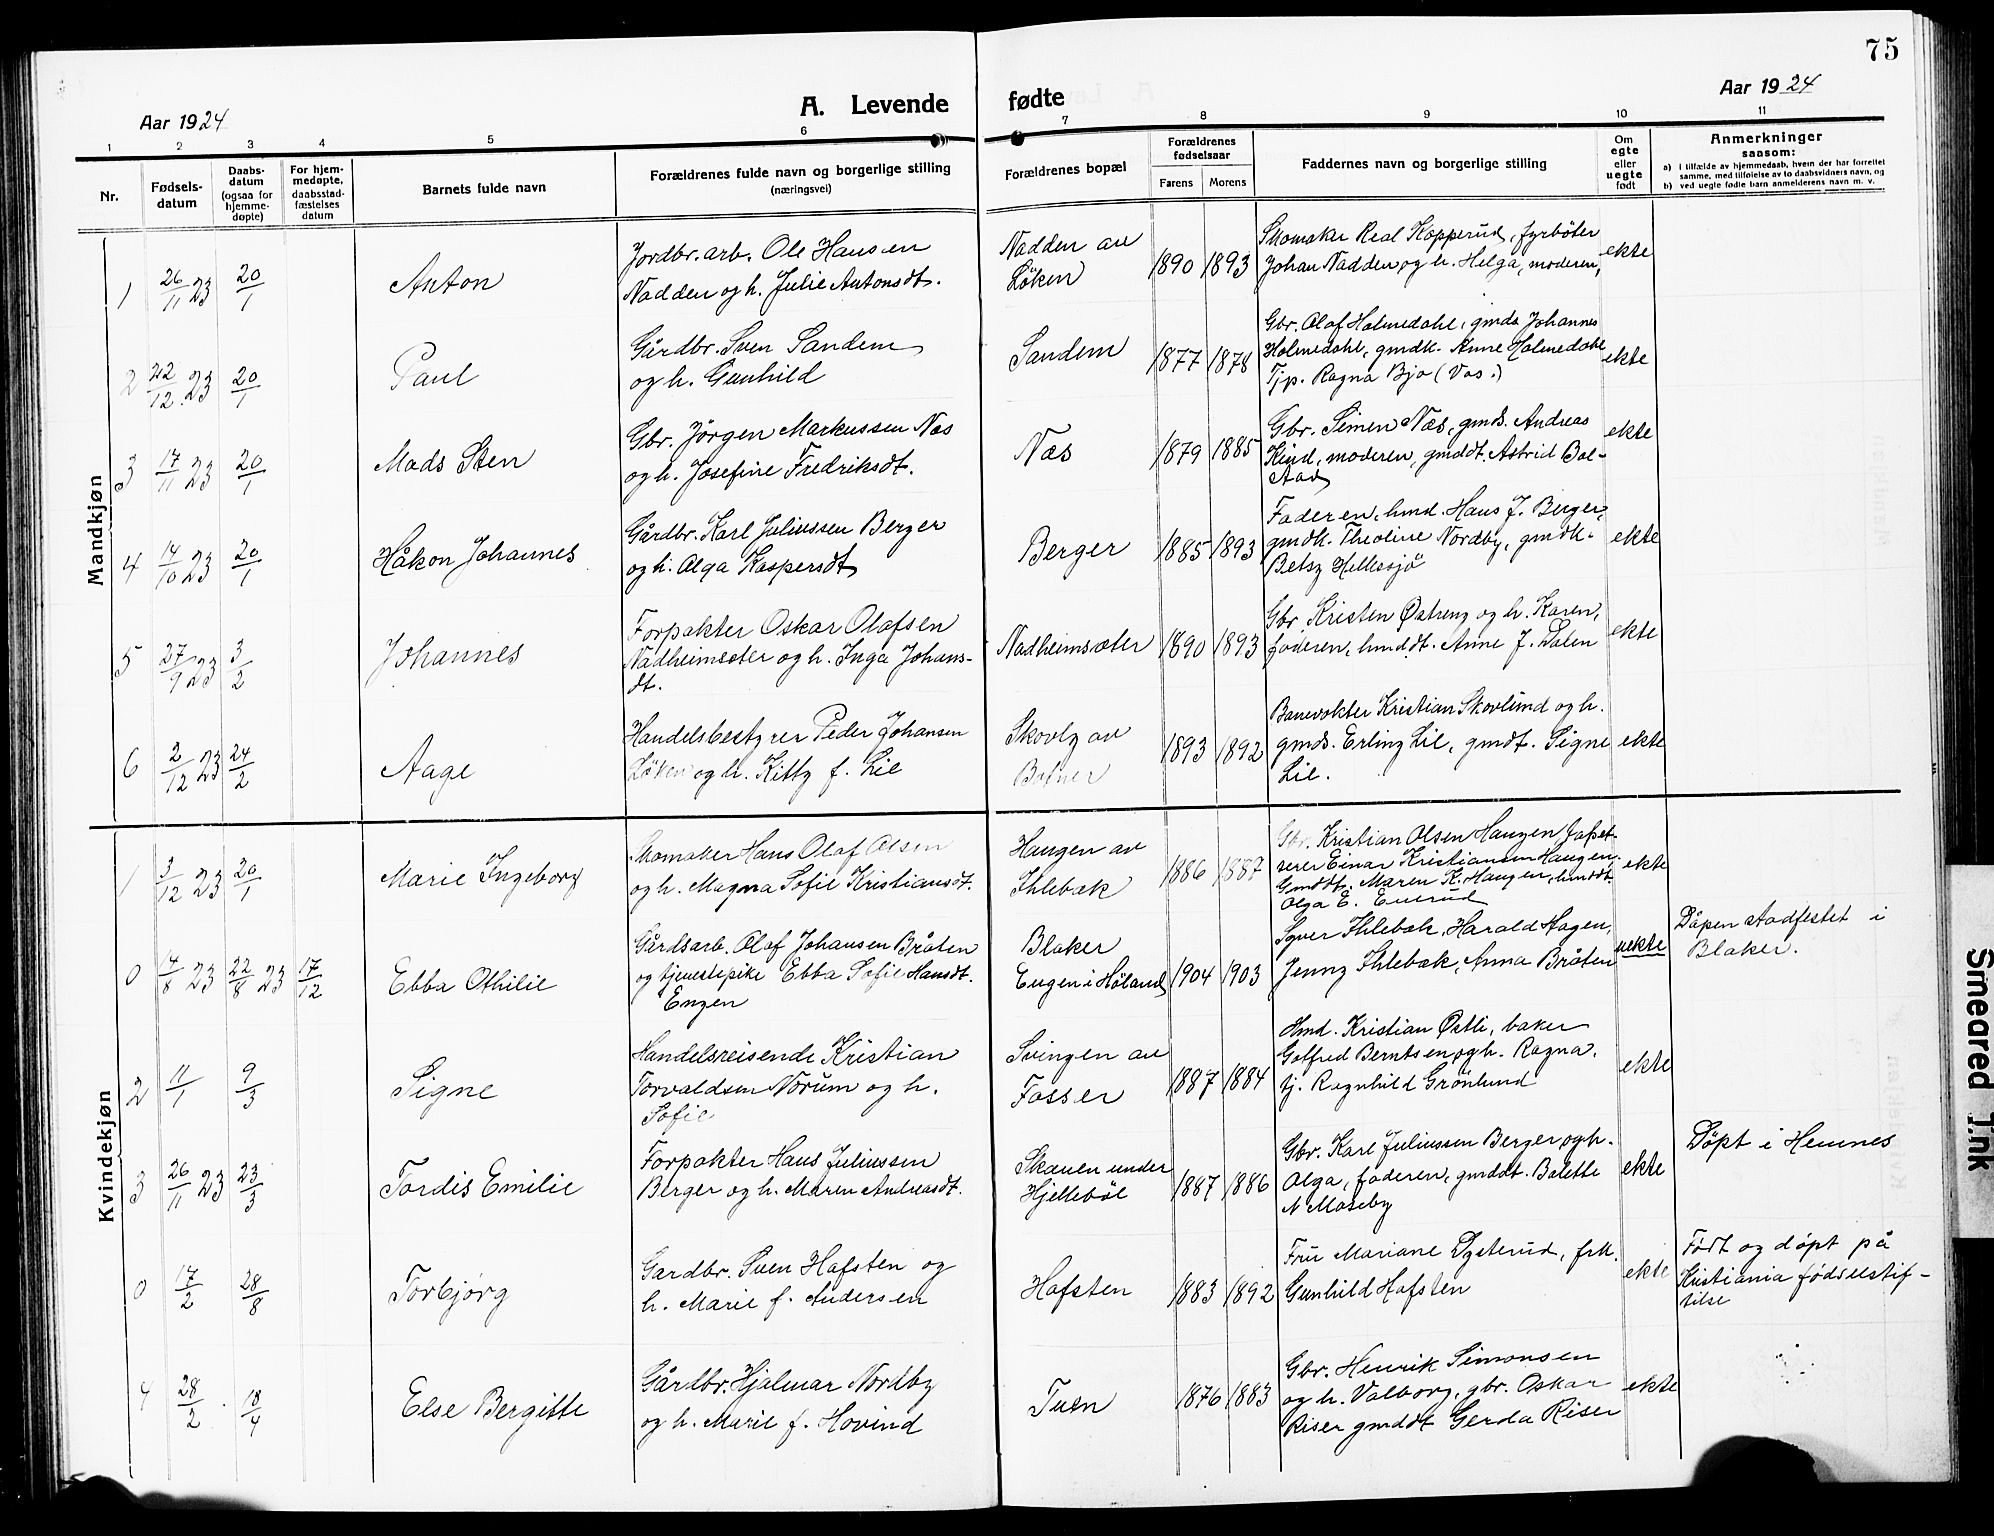 75
Aar 1924
A. Levende fødte
Aar 1924
1 2 3 4 5 6 7 8 9 10 11
Nr.
Fødsels-
datum
Daabs-
datum
(ogsaa for
hjemme-
døpte)
For hjem-
medøpte,
daabsstad-
fæstelses
datum
Barnets fulde navn
Forældrenes fulde navn og borgerlige stilling
(næringsvei)
Forældrenes bopæl
Forældrenes
fødselsaar
Farens Morens
Faddernes navn og borgerlige stilling
Om
egte
eller
uegte
født
Anmerkninger
saasom:
a) i tilfælde av hjemmedaab, hvem der har forrettet
samme, med tilføielse av to daabsvidners navn, og
b) ved uegte fødte barn anmelderens navn m. v.
Mandkjøn
1 26/11 23 20/1 Anton
Jordbr. arb. Ole Hansen
Nadden og h. Julie Antonsdt.
Nadden av
Løken
1890 1893
Skomaker Real Kopperud, fyrbøter
Johan Nadden og h. Helga, moderen,
ekte
2 22/12 23 20/1 Paul
Gårdbr. Sven Sandem
og h. Gunhild
Sandem
1877 1878
Gbr. Olaf Holmedahl, gmds Johannes
Holmedahl, gmdk. Anne Holmedahl
Tjp. Ragna Bjo (Vos.)
ekte
3 17/11 23 20/1 Mads Sten
Gbr. Jörgen Markussen Næs
og h. Josefine Fredriksdt.
Næs
1879 1885
Gbr. Simen Næs, gmds. Andreas
Kind, moderen, gmddt. Astrid Bol-
stad
ekte
4 14/10 23 20/1 Håkon Johannes
Gårdbr. Karl Juliussen Berger
og h. Olga Kaspersdt
Berger
1885 1893
Faderen, hmd. Hans J. Berger,
gmdk. Theoline Nordby, gmdk.
Betsy Hellesjö
ekte
5 27/9 23 3/2 Johannes
Forpakter Oskar Olafsen
Nadheimsæter og h. Inga Johans-
dt.
Nadheimsæter
1890 1893
Gbr. Kristen Østreng og h. Karen,
faderen, hmddt. Anne J. Dalen
ekte
6 2/12 23 24/2 Aage
Handelsbestyrer Peder Johansen
Løken og h. Kitty f. Lie
Skovly av
Botner
1893 1892
Banevokter Kristian Skovlund og h.
gmds. Erling Lie, gmdt. Signe
Lie.
ekte
Kvindekjøn
1 3/12 23 20/1 Marie Ingeborg
Skomaker Hans Olaf Olsen
og h. Magna Sofie Kristiansdt.
Haugen av
Ihlebæk
1886 1887
Gbr. Kristian Olsen Haugen, tapet-
serer Einar Kristiansen Haugen.
Gmddt. Maren K. Haugen, hmddt.
Olga E.
ekte
0 14/8 23 22/8 23 17/12 Ebba Othilie
Gårdsarb. Olaf Johansen Bråten
og tjenestepike Ebba Sofie Hansdt.
Engen
Blaker
Eugen i Høland
1904 1903
Syver Ihlebæk, Harald Hagen,
Jenny Ihlebæk, Anna Bråten
uekte
Dåpen stadfestet i
Blaker.
2 11/1 9/3 Signe
Handelsreisende Kristian
Torvaldsen Norum og h.
Sofie
Svingen av
Fosser
1887 1884
Hmd. Kristian Østli, baker
Gotfred Berntsen og h. Ragna,
tj. Ragnhild Grønlund
ekte
3 26/11 23 23/3 Tordis Emilie
Forpakter Hans Juliussen
Berger og h. Maren Andreasdt.
Skauen under
Hjellebøl
1887 1886
Gbr. Karl Juliussen Berger og h.
Olga, faderen, gmddt. Balette
N Moseby
ekte
Døpt i Hemnes
0 17/2 28/8 Torbjørg
Gardbr. Sven Hafsten og
h. Marie f. Andersen
Hafsten
1883 1892
Fru Mariane Dysterud, frk.
Gunhild Hafsten
ekte
Født og døpt på
Kristiania fødselstif-
telse
4 28/2 18/4 Else Bergitte
Gårdbr. Hjalmar Nordby
og h. Marie f. Hovind
Tuen
1876 1883
Gbr. Henrik Simonsen
og h. Valborg, gbr. Oskar
Riser gmddt Gerda Riser
ekte
Smeared Ink